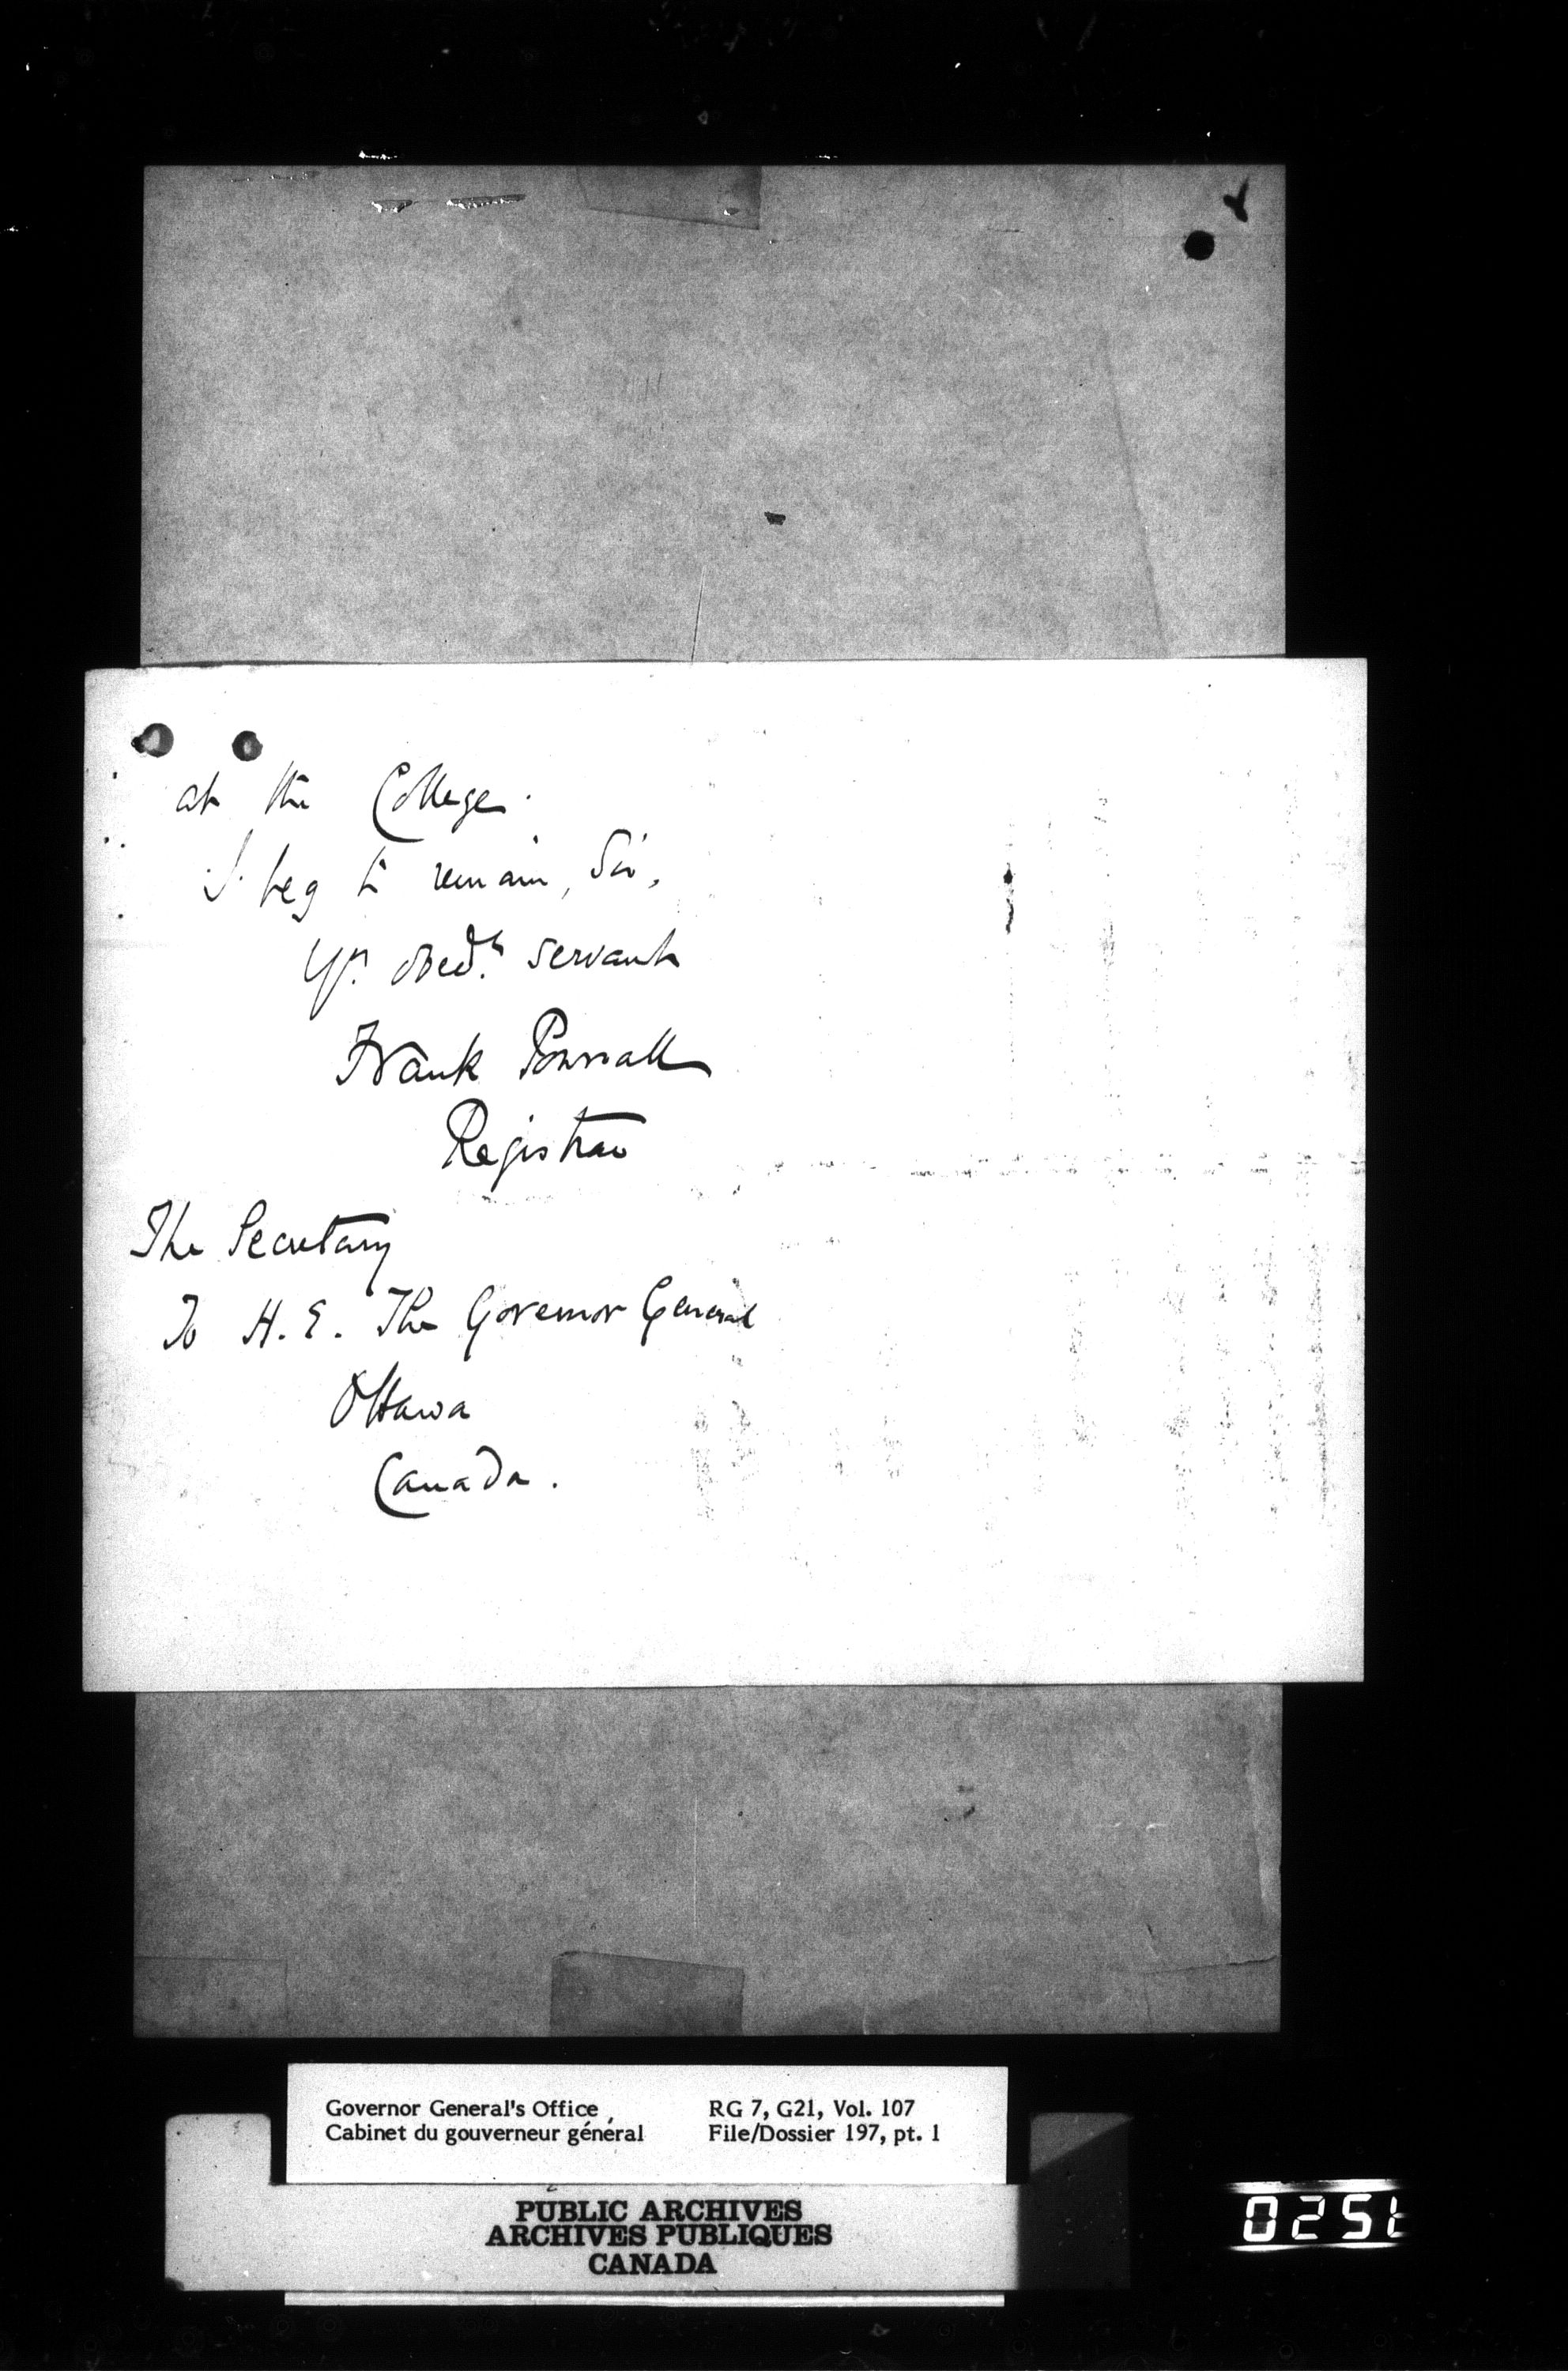 at the College.
I beg to remain, Sir,
Yr. obedt. servant
Frank Pownall
Registrar
The Secretary
To H. E. The Governor General
Ottawa
Canada.
Governor General's Office RG 7, G21, Vol. 107
Cabinet du gouverneur général File/Dossier 197, pt. 1
PUBLIC ARCHIVES
ARCHIVES PUBLIQUES
CANADA
0251